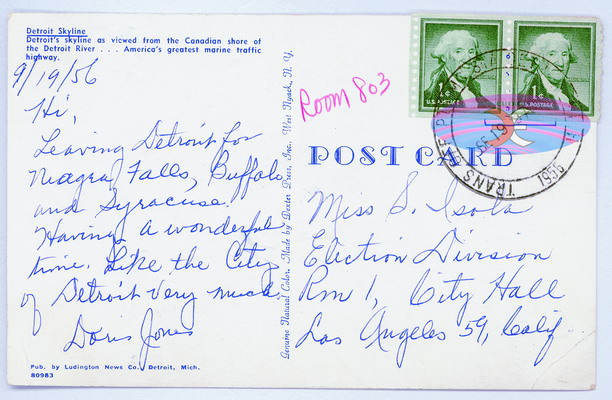 Detroit Skyline
Detroit's skyline as viewed from the Canadian shore of
the Detroit River . . . America's greatest marine traffic
highway.
9/19/56
Hi,
Leaving Detroit for
Niagra Falls, Buffalo
and Syracuse.
Having a wonderful
time. Like the City
of Detroit very much.
Doris Jones
Pub. by Ludington News Co. Detroit, Mich.
80983
Genuine Natural Color. Made by Dexter Press, Inc., West Nyack, N. Y.
Room 803
POST CARD
1¢
U.S. POSTAGE
1¢
U.S. POSTAGE
TRANS
1956
Miss S. Isola
Election Division
Rm 1, City Hall
Los Angeles 59, Calif